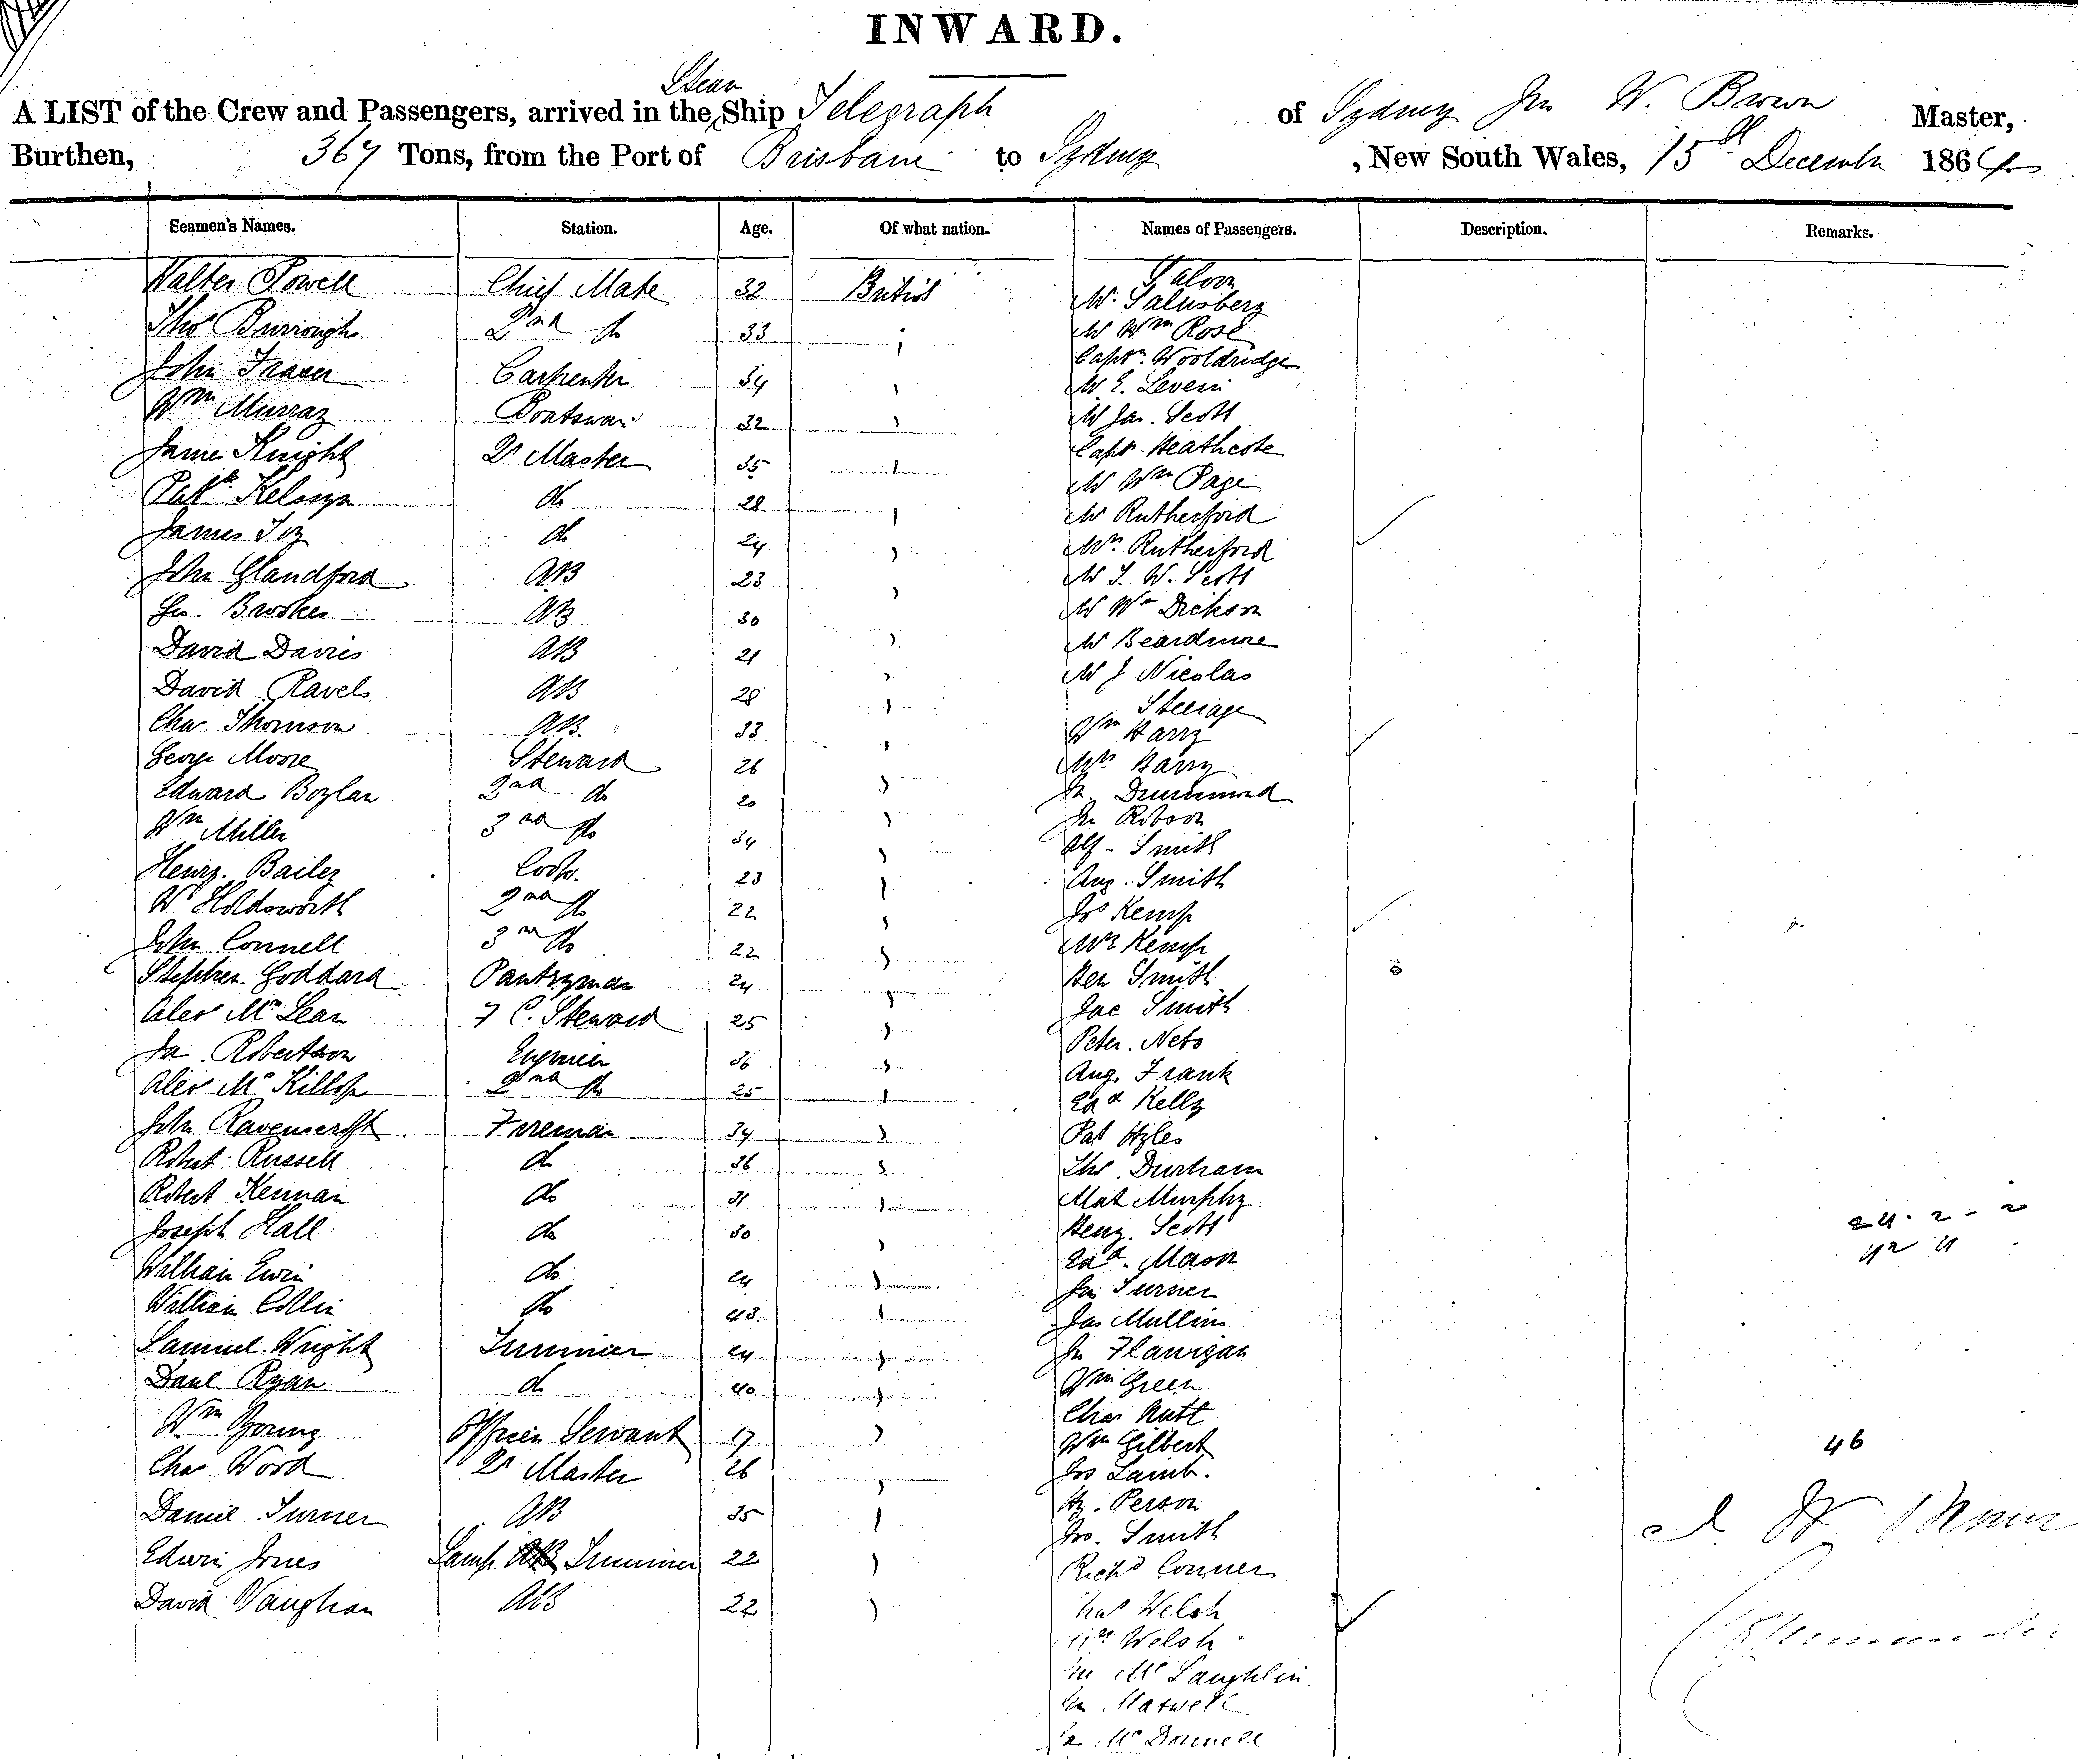 INWARD.
A LIST of the Crew and Passengers, arrived in the Steam Ship Telegraph of Sydney Jno W. Brown Master,
Burthen, 367 Tons, from the Port of Brisbane to Sydney, New South Wales, 15th December 1864
Seamen's Names. Station. Age. Of what nation. Names of Passengers. Description. Remarks.
Saloon
Walter Powell Chief Mate 32 British Mr Salusbery
Thos Burrough 2nd do 33 Mr Wm Rose
Captn. Wooldridge
John Fraser Carpenter 34 Mr E. Leveri
Wm Murray Boatswain 32 Mr Jas. Scott
James Knight Qr Master 35 Capt Heathcote
Patk do 28 Mr Wm Page
Mr Rutherford
James Foy do 24 Mrs Rutherford
John Glandford AB 23 Mr S. W. Scott
Jno. Brookes AB 30 Mr Wm Dickson
David Davies AB 21 Mr Beardmore
David Ravels AB 28 Mr J Nicolas
Steerage
Chas Thomson AB. 33 Wm Harry
George Moore Steward 26 Mrs Harry
Edward Boylan 2nd do 20 Jn Drummond
Wm Miller 3rd do 34 Jn Robson
Alf - Smith
Henry Bailey Cook. 23 Aug. Smith
W Holdsworth 2nd do 22 Jos Kemp
John Connell 3rd do 22 Mrs Kemp
Stephen Goddard Pantryman 24 Hen Smith
Alex McLean F C. Steward 25 Jac Smith
Jas Robertson Engineer 36 Peter. Nets
Alex McKillop 2nd do 25 Aug. Frank
Edd Kelly
John Ravenscroft Fireman 34 Pat Hyles
Robert Russell do 36 Thos Durham
Robert Kennan do 31 Mat Murphy
Joseph Hall do 30 Heny. Scott
William Ewin do 24 Edd. Mason
William Collin do 43 Jn Turner
Jas Mullins
Samuel Wright Trimmer 24 Jn Flanigan
Danl Ryan do 40 Wm Green
Chas Nutt
Wm Young Officers Servant 17 Wm Gilbert 46
Chas Wood Qr Master 26 Jos Lamb.
Hy. Person
Daniel Turner AB 35 Jno. Smith
Edwin Jones Lamp Trimmer 22 Richd Conner
David Vaughan AB 22 Welsh
Mrs Welsh
McLaughlin
Maxwell
McDonnell